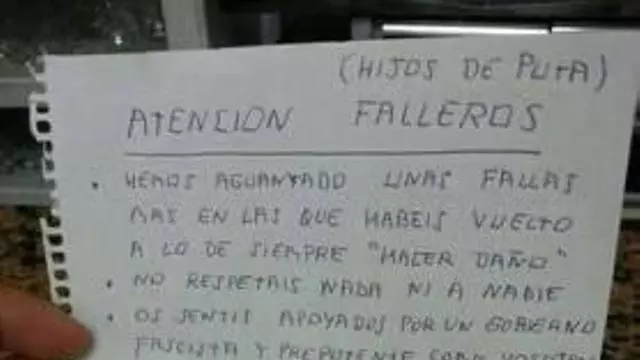 (HIJOS DE PUTA)
ATENCION FALLEROS
• HEMOS AGUANTADO UNAS FALLAS
MAS EN LAS QUE HABEIS VUELTO
A LO DE SIEMPRE "HACER DAÑO"
• NO RESPETAIS NADA NI A NADIE
• OS SENTIS APOYADOS POR UN GOBIERNO
FASCISTA Y PREPOTENTE COMO VOSOTROS